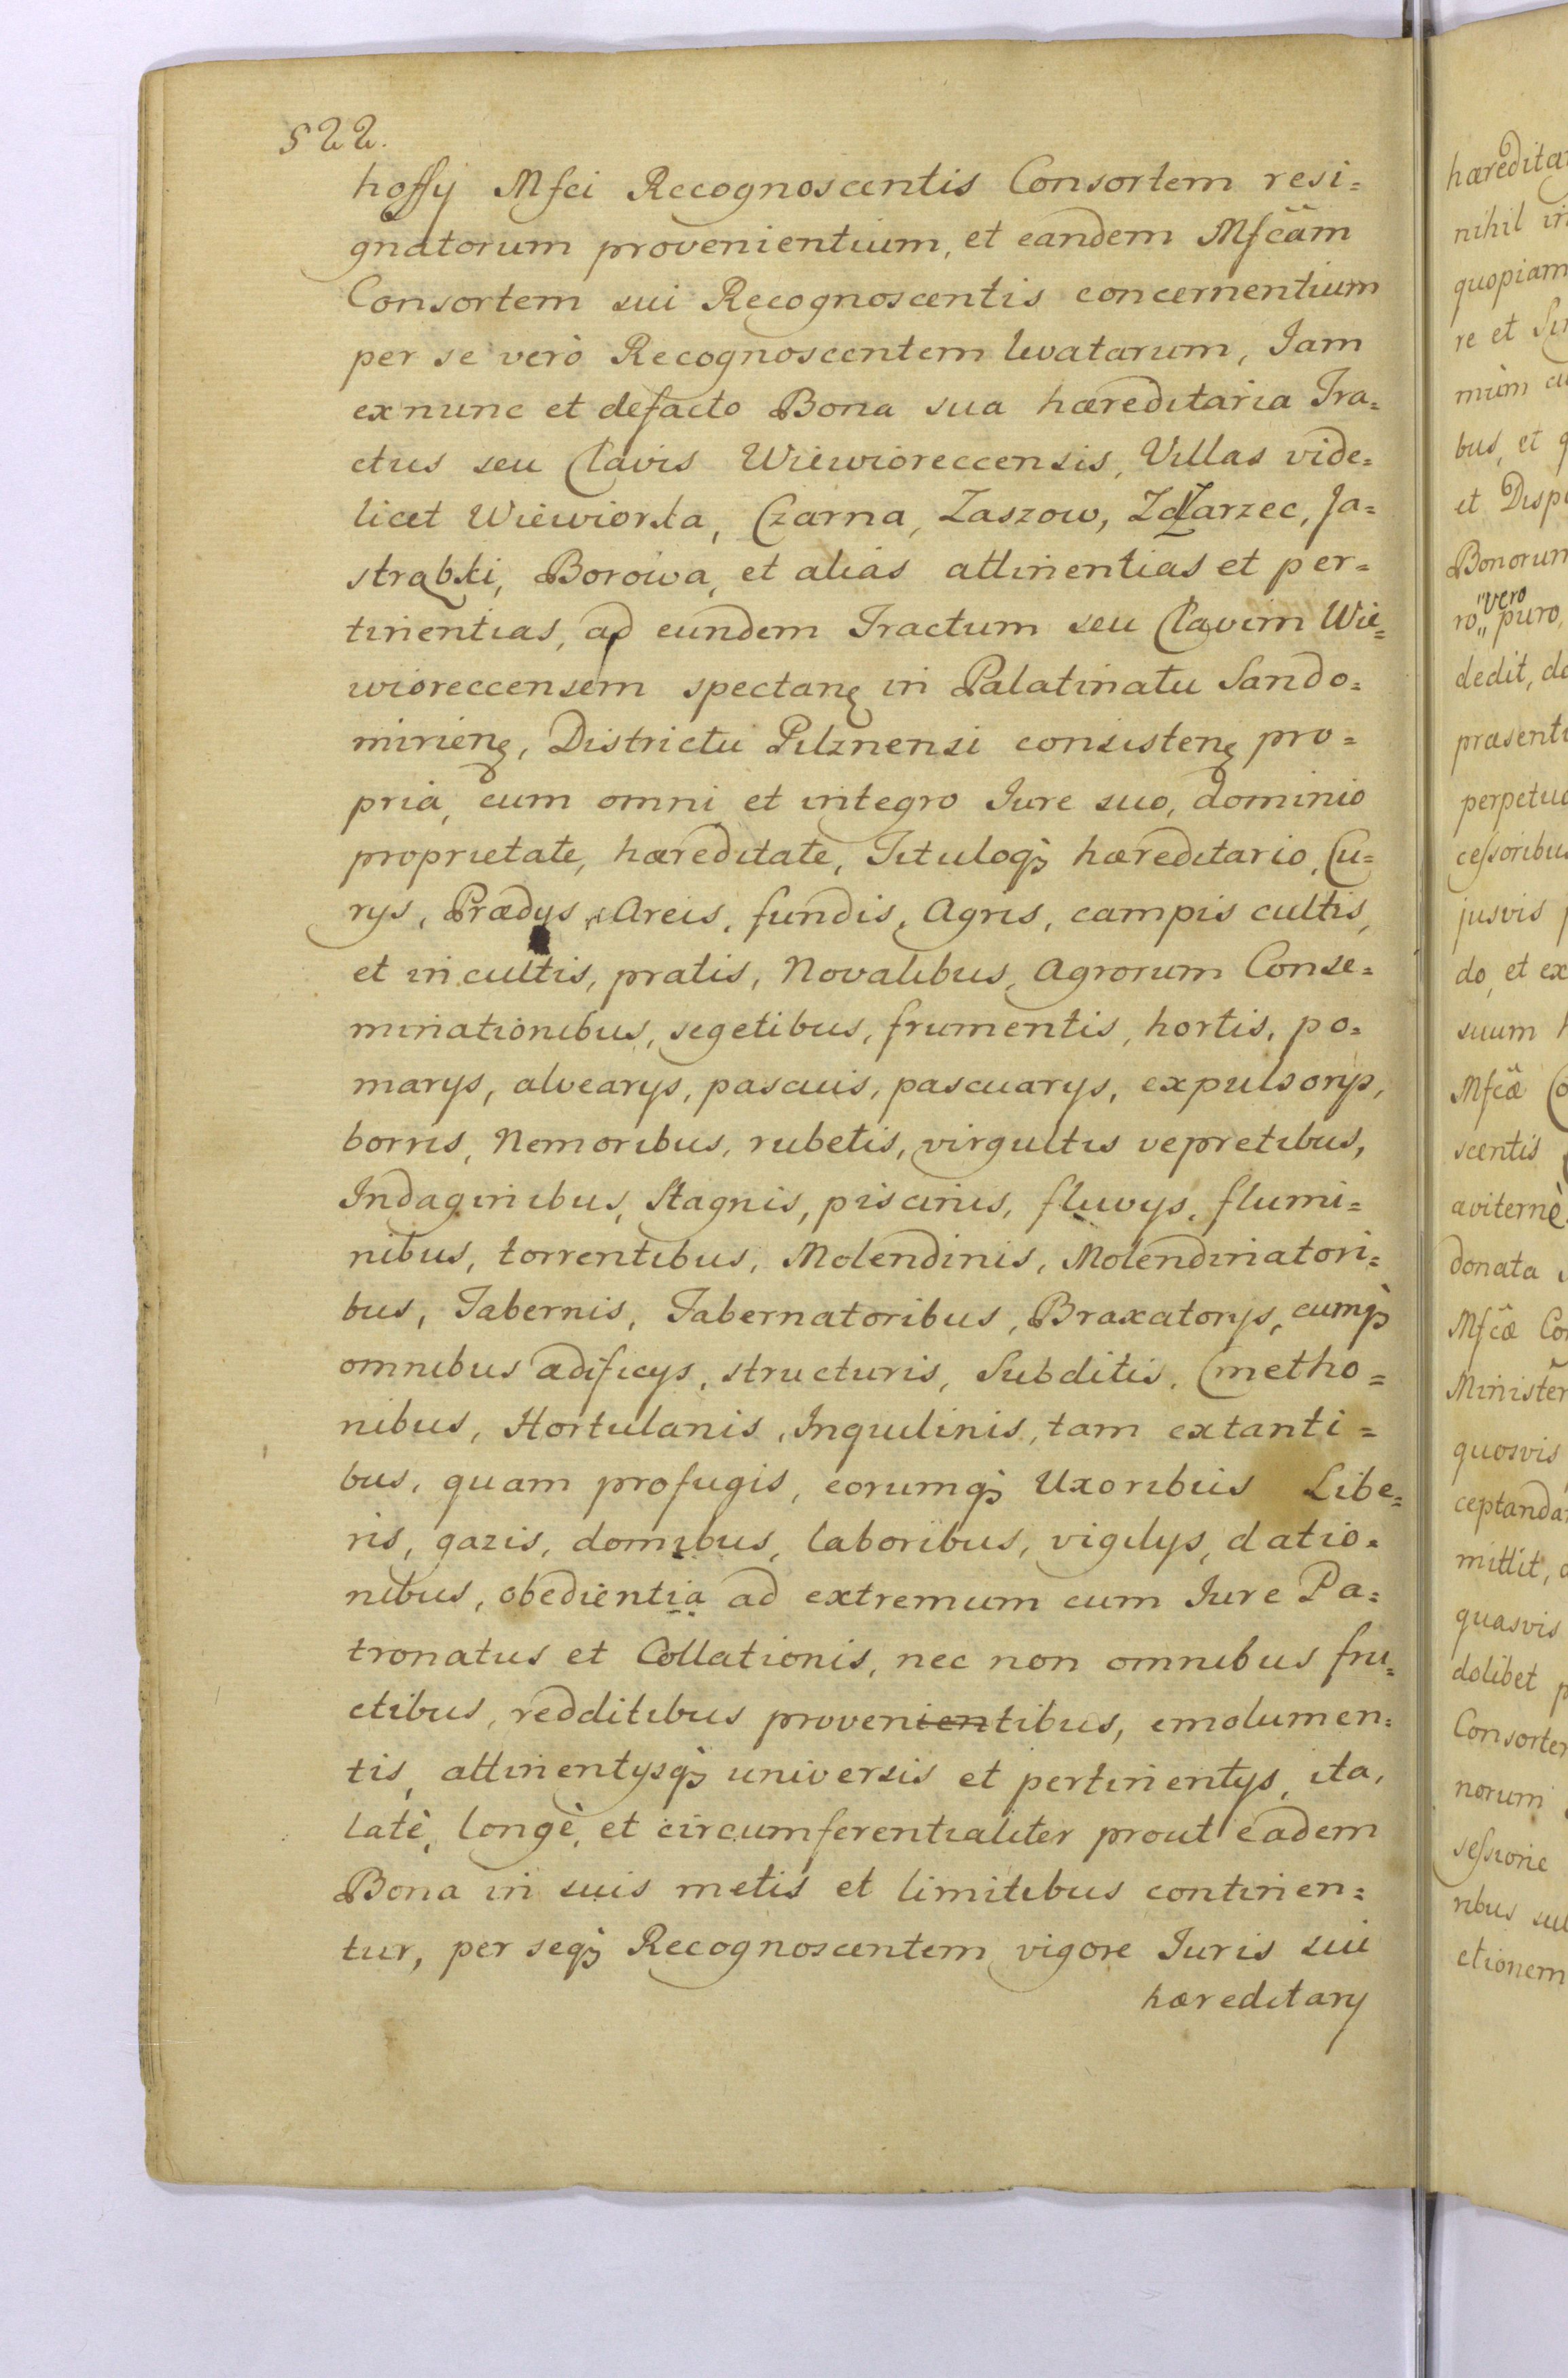 522.
hoffy Mfci Recognoscentis Consortem resi=
gnatorum provenientium, et eandem Mfcam
Consortem sui Recognoscentis concernentium
per se verò Recognoscentem levatarum, Iam
ex nunc et defacto Bona sua hæreditaria Tra=
ctus seu Clavis Wiewioreccensis, Villas vide=
licet Wiewiorka, Czarna, Zaszow, Ja=
strąbki, Borowa, et alias attinentias et per=
tinentias, ad eundem Tractum seu Clavim Wie=
wioreccensem spectanę in Palatinatu Sando=
mirienę, Districtu Pilznensi consistenę pro=
pria, cum omni et integro Iure suo, dominio
proprietate, hæreditate, Tituloqꝫ hæreditario, Cu=
rys, Prædys, Areis, fundis, Agris, campis cultis,
et incultis, pratis, Novalibus, Agrorum Conse=
minationibus, segetibus, frumentis, hortis, po=
marys, alvearys, pascuis, pascuarys, expulsorys,
borris, Nemoribus, rubetis, virgultis vepretibus,
Indaginibus, Stagnis, piscinis, fluvys, flumi=
nibus, torrentibus, Molendinis, Molendinatori=
bus, Tabernis, Tabernatoribus, Braxatorys, cumqꝫ
omnibus ædificys, structuris, Subditis, Cmetho=
nibus, Hortulanis, Inquilinis, tam extanti=
bus, quam profugis, eorumqꝫ Uxoribus Libe=
ris, gazis, domibus, laboribus, vigilys, datio=
nibus, obedientia ad extremum cum Iure Pa=
tronatus et Collationis, nec non omnibus fru=
ctibus, redditibus provenientibus, emolumen=
tis, attinentysqꝫ universis et pertinentys, ita,
latè, longè, et circumferentialiter prout eadem
Bona in suis metis et limitibus continen=
tur, per seqꝫ Recognoscentem vigore Iuris sui
hæreditary
nihil
quopiam
re et
bus, et
et
vero
ro puro,
dedit,
perpetuo
jusvis
do, et ex
suum
Mfcæ
scentis
aviternè
donata
Mfcæ
quosvis
mittit,
quasvis
dolibet
norum
sessione
ribus
ctionem